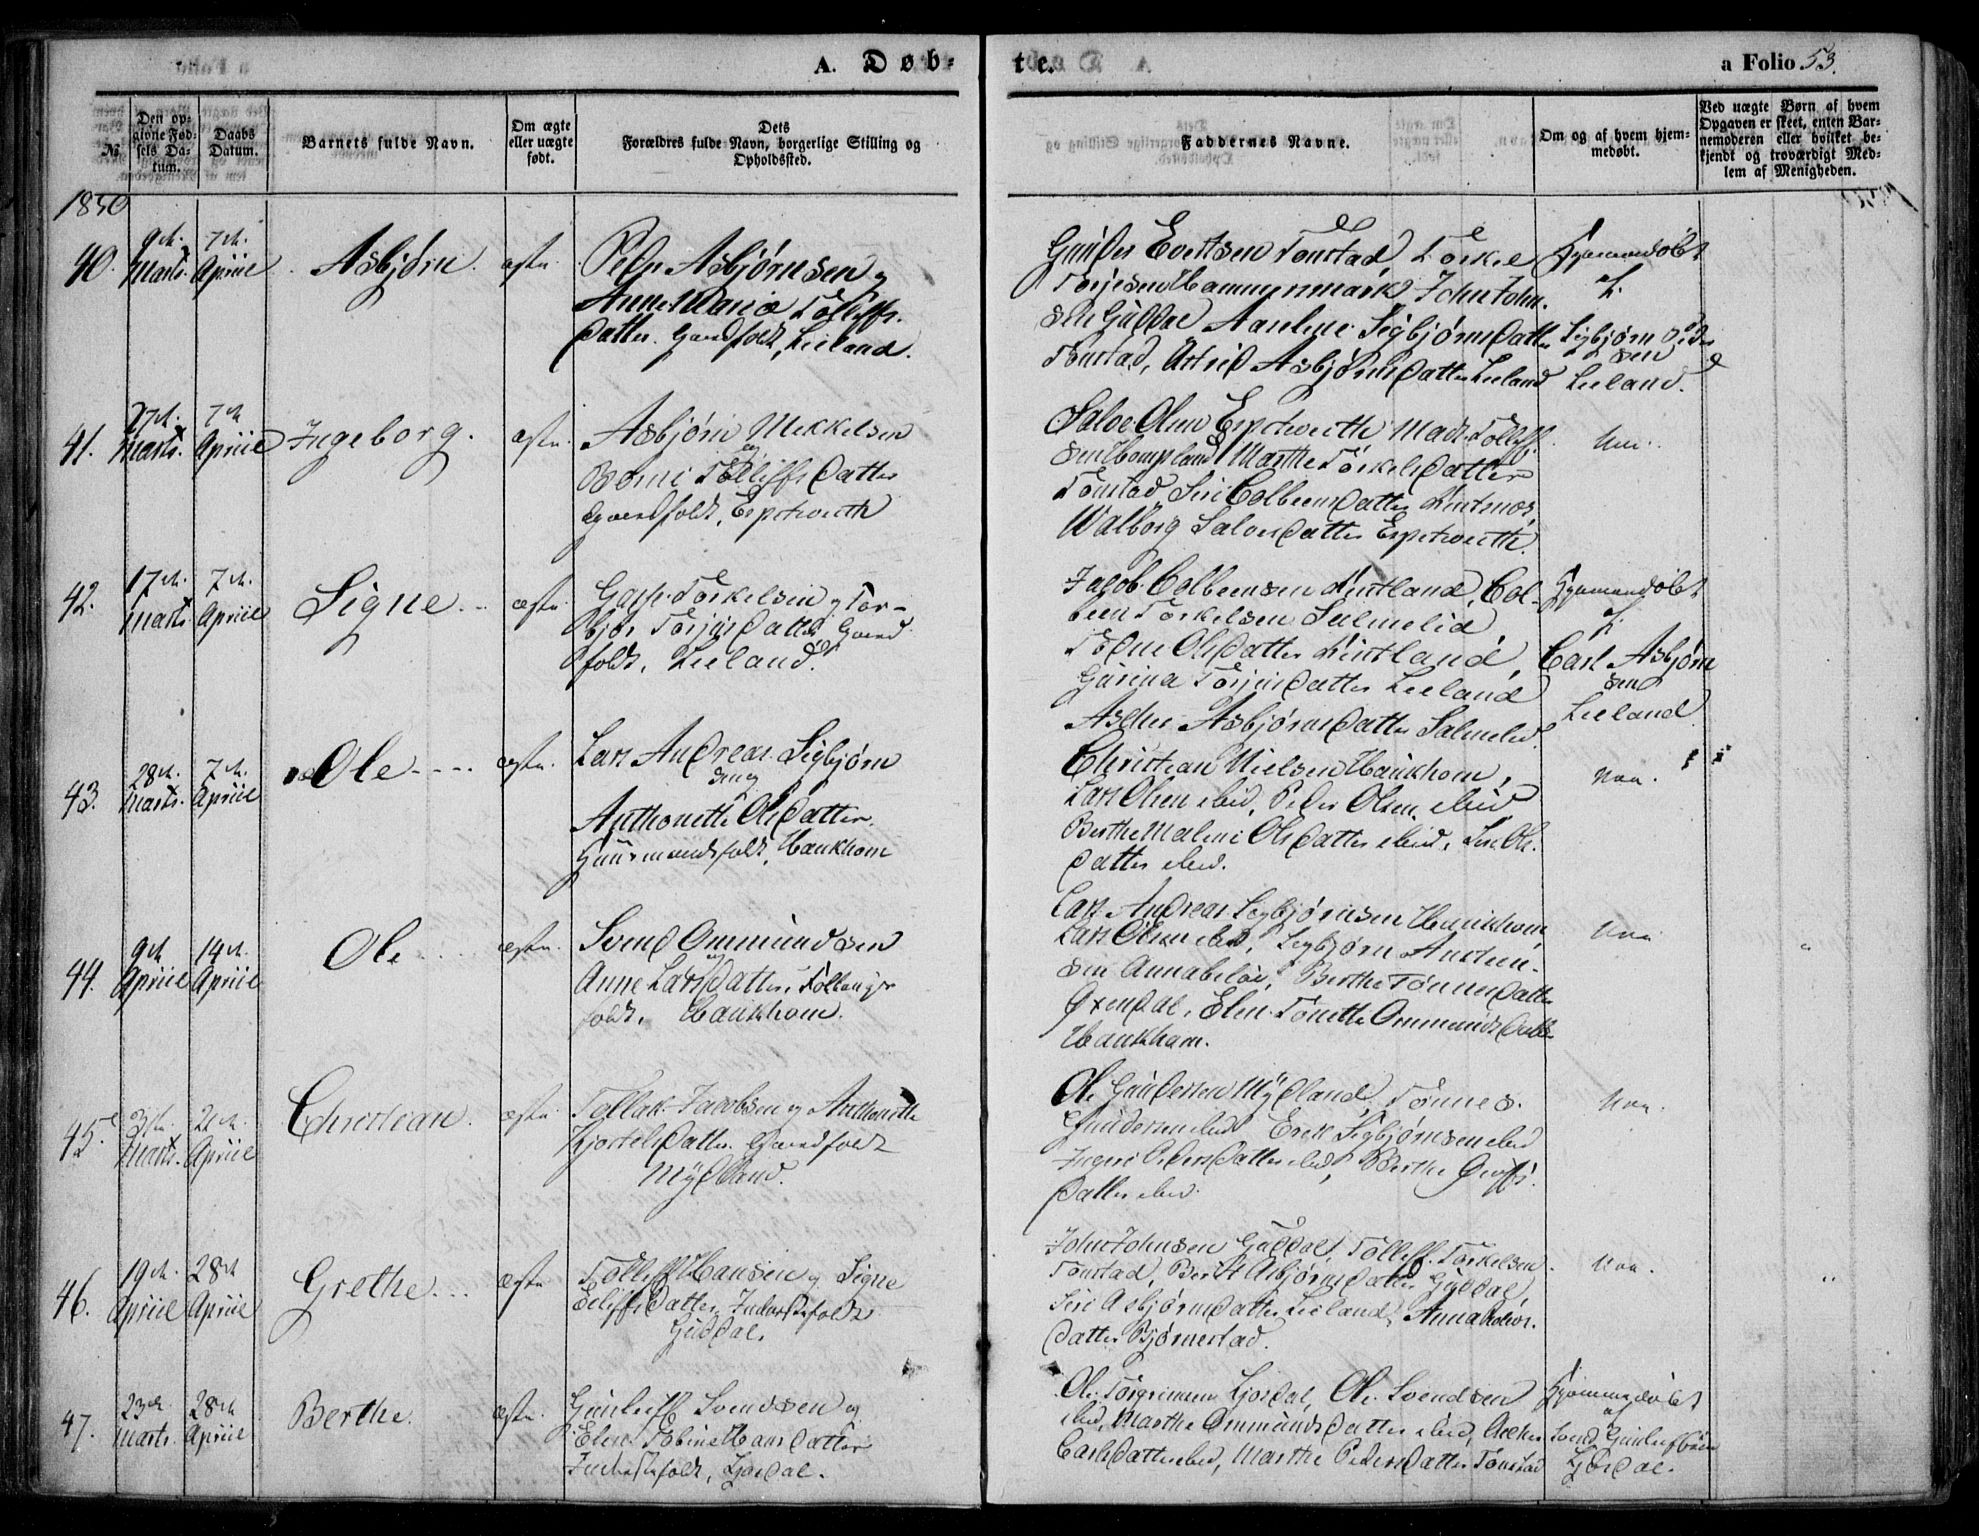 A. Døb-
te.
a Folio 53.
№.
Den op-
givne Fød-
sels Da-
tum.
Daabs
Datum.
Barnets fulde Navn.
Om ægte
eller uægte
født.
Dets
Forældres fulde Navn, borgerlige Stilling og
Opholdssted.
Faddernes Navne.
Om og af hvem hjem-
medøbt.
Ved uægte Børn af hvem
Opgaven er skeet, enten Bar-
nemoderen eller hvilket be-
kjendt og troværdigt Med-
lem af Menigheden.
1850
40.
9de
Marts.
7de
April
Asbjørn.
ægte.
Peder Asbjørnsen og
Anne Maria Tolliffs-
datter. Gaardfolk, Leeland.
Gunder Evertsen Tonstad, Torkel
Torjesen Hammermark, John John-
sen Guddal Aaselene Sigbjørnsdatter
Tonstad, Astrid Asbjørnsdatter Leeland
Hjemmedøbt
af
Sigbjørn Peder
sen
Leeland.
41.
27de
Marts.
7de
April
Ingeborg.
ægte.
Asbjørn Mekkelsen
og
Bomi Tolliffsdatter
Gaardfolk, Espetveith
Salve Olsen Espetveith Mads Tolleff-
sen Hompland Marthe Torkelsdatter
Tonstad, Siri Colbeensdatter
Walborg Salvesdatter Espetveith.
42.
17de
Marts
7de
April
Signe..
ægte.
Torkelsen og Tor-
bjør Torjusdatter Gaard
folk, Leeland.
Jacob Colbeensen Kintland, Col-
been Torkelsen Salmelid
Olsdatter Kintland,
Gurina Torjusdatter Leeland
Asbjørnsdatter Salmelid.
Hjemmedøbt
af
Carl Asbjørn
sen
Leeland
43.
28de
Marts.
7de
April
Ole....
ægte.
Lars Andreas Sigbjørn
sen og
Anthonette Olsdatter.
Huusmandsfolk, Haukhom
Christian Nielsen Haukhom,
Lars Olsen ibid, Peder Olsen, ibid
Berthe Malene Olsdatter ibid, Siri Ols-
datter ibid.
Nei.
44.
9de
April
14de
April
Ole
ægte.
Svend Ommundsen
og
Anne Larsdatter,
folk, Haukhom.
Lars Andreas Sigbjørnsen Haukhom
Lars Olsen ibid, Sigbjørn Austen-
sen Annabeløe, Berthe Tønnesdatter
Øxendal, Elen Tonette Ommundsdatter
Haukhom.
Nei
"
45.
3de
Marts.
21de
April
Christian.
ægte.
Tollak Jacobsen og Anthonette
Kjostelsdatter. Gaardfolk
Mydland.
Ole Gundersen Mydland, Tønnes
Gundersen ibid Erik Sigbjørnsen ibid
Ingeri Pedersdatter ibid, Berthe
datter ibid.
Nei.
46.
19de
April
28de
April
Grethe...
ægte
Tolleff Hansen og Signe
Eeliffsdatter, Inderstfolk
Guddal.
John Johnsen Guddal, Tolleff Torkelsen
Tonstad, Berit Asbjørnsdatter Guddal,
Siri Asbjørnsdatter Leeland, Anna
datter Bjørnestad.
Nei.
"
47.
23de
Marts.
28de
April
Berthe.
ægte.
Gunleiff Svendsen og
Elen Tobine Hansdatter
Inderstfolk, Josdal.
Ole Torgrimsen Josdal, Ole Svendsen
ibid, Marthe Ommundsdatter ibid,
Carlsdatter ibid, Marthe Pedersdatter Tonstad
Hjemmedøbt
af
Svend Gunleifsen
Josdal.